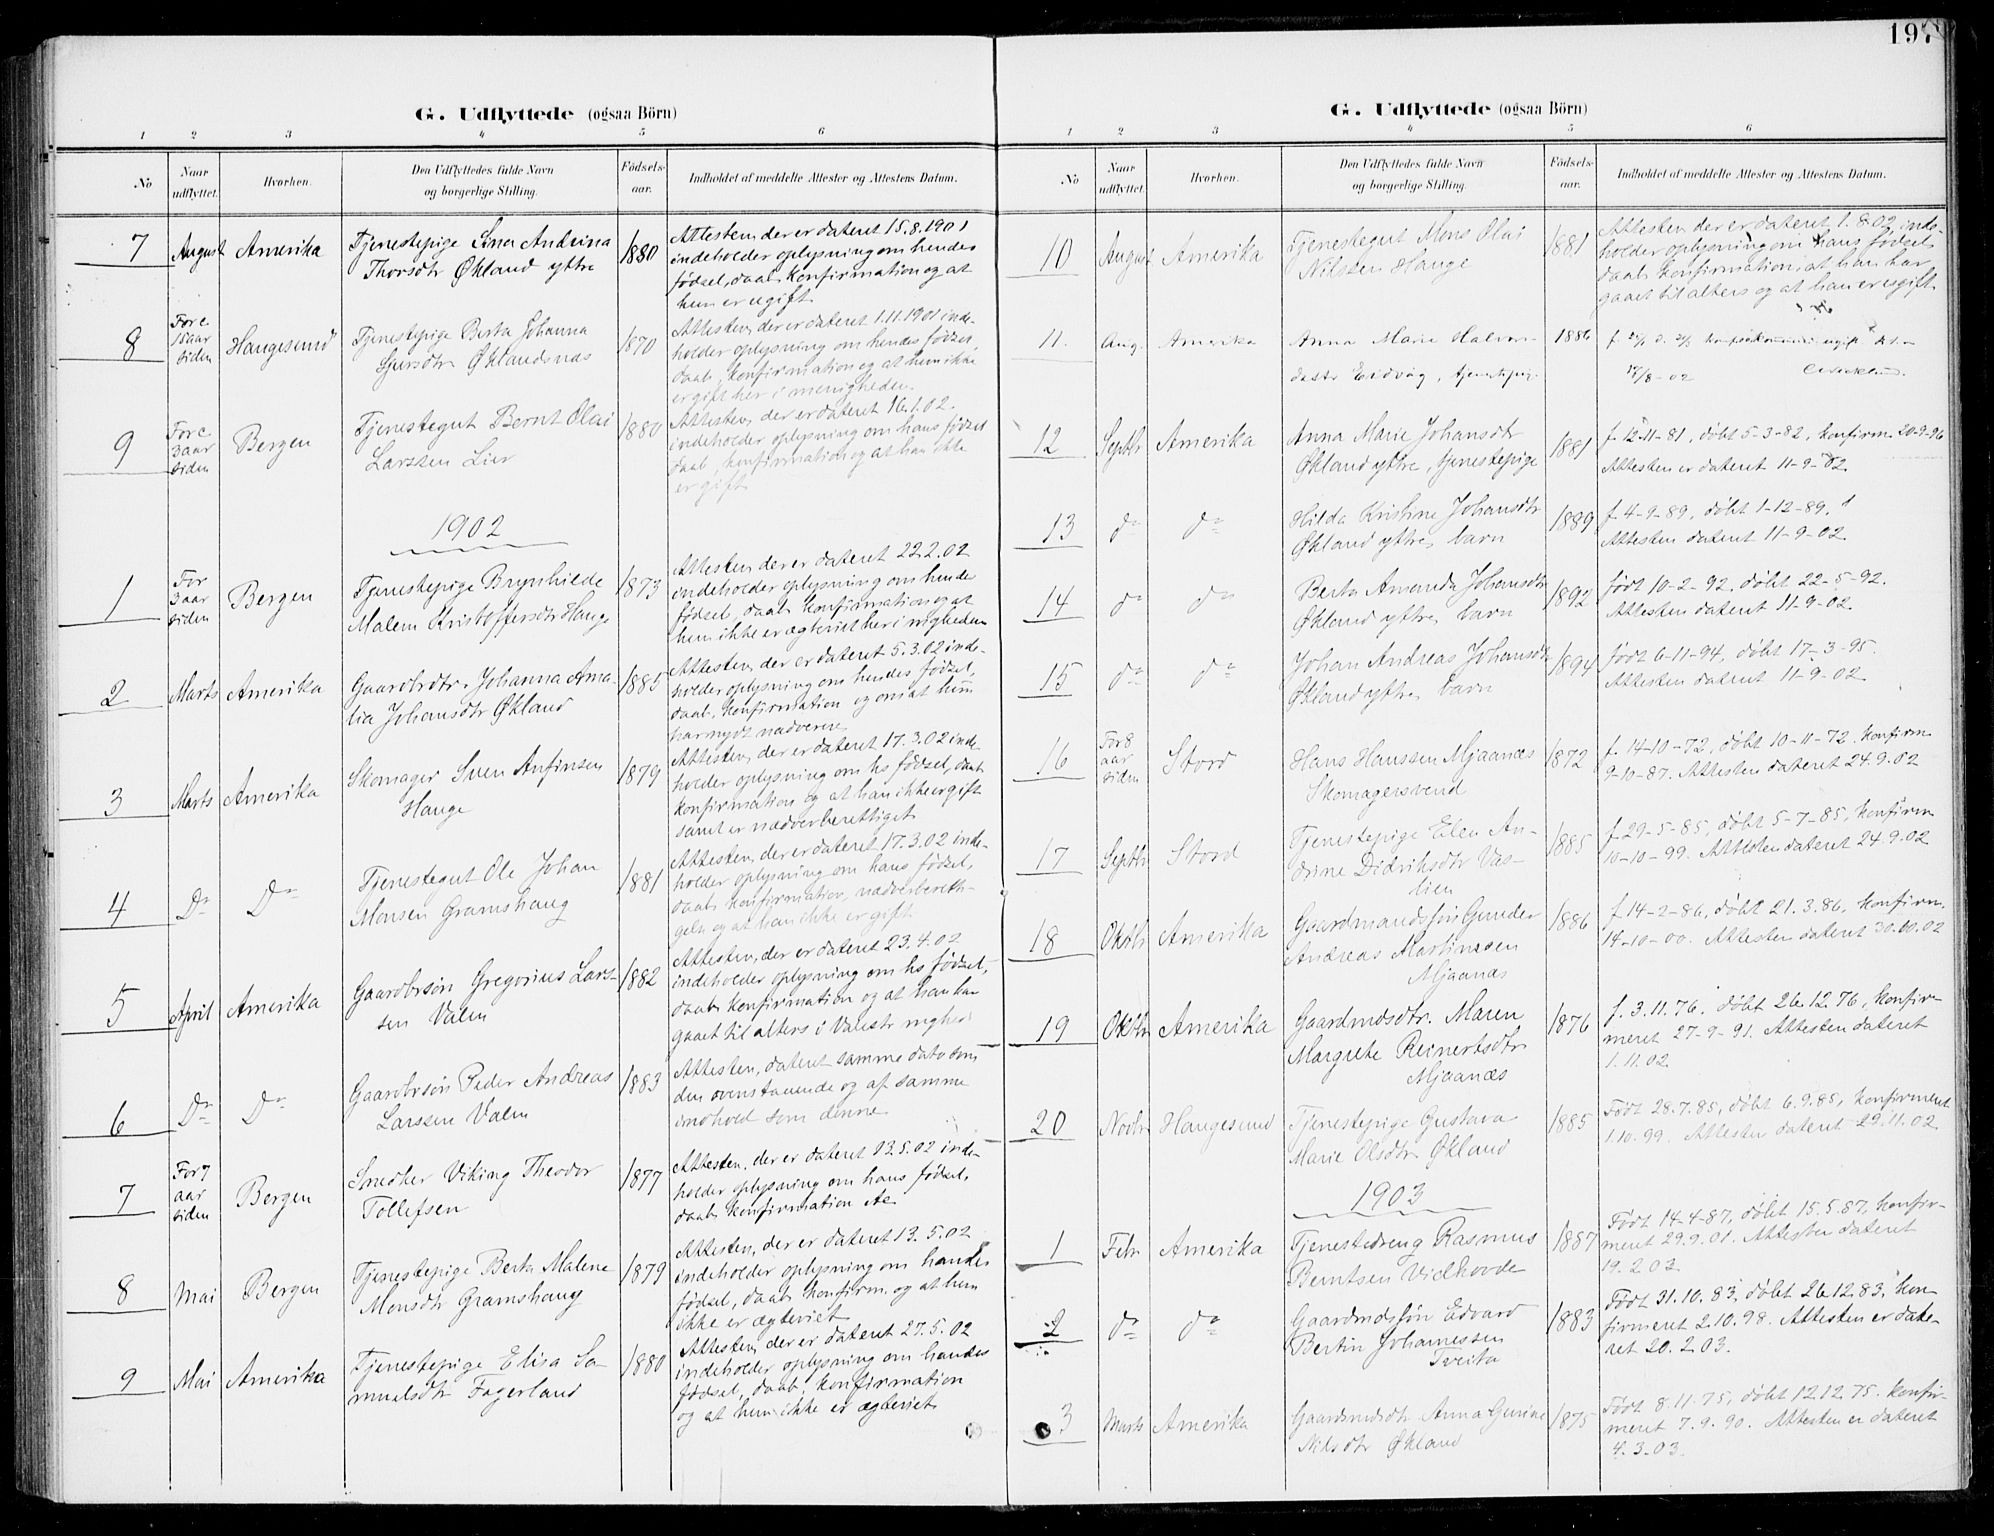 197
G. Udflyttede (ogsaa Börn)
1 2 3 4 5 6
No
Naar udflyttet.
Hvorhen.
Den Udflyttedes fulde Navn og borgerlige Stilling.
Fødsels-aar.
Indholdet af meddelte Attester og Attestens Datum.
7 August Amerika Tjenestepige Sina Andrina 1880 Attesten, der er dateret 15.8.1901
Thorsdtr Økland ytre indeholder oplysning om hendes
fødsel, daab, konfirmation og at
hun er ugift
8 For c 15 aar siden Haugesund Tjenestepige Berta Johanna 1870 Attesten, der er dateret 1.11.1901 inde-
Sjursdtr Øklandsnas holder oplysning om hendes fødsel,
daab, konfirmation og at hun ikke
er gift her i menigheden.
9 For c 3 aar siden Bergen Tjenestegut Bernt Olai 1880 Attesten, der er dateret 16.1.02.
Larssen Lier indeholder oplysning om hans fødsel
daab, konfirmation og at han ikke
er gift
1902
1 For 3 aar siden Bergen Tjenestepige Brynhilde 1873 Attesten, der er dateret 22.2.02
Malene Kristoffersdtr Hauge indeholder oplysning om hendes
fødsel, daab, konfirmation og at
hun ikke er ægteviet her i migheden
2 Marts Amerika Gaardbrdtr. Johanna Ama- 1885 Attesten, der er dateret 5.3.02 inde-
lia Johansdtr Økland holder oplysning om hendes fødsel,
daab, konfirmation og om at hun
har nydt nadveren
3 Marts Amerika Skomager Sven Anfinsen 1879 Attesten, der er dateret 17.3.02 inde-
Hauge holder oplysning om hs fødsel, daab
konfirmation og at han ikke er gift
samt er nadverberettiget
4 Do Do Tjenestegut Ole Johan 1881 Attesten, der er dateret 17.3.02 inde-
Monsen Gramshaug holder oplysning om hans fødsel,
daab, konfirmation, nadverberetti-
gelse og at han ikke er gift
5 April Amerika Gaardbrsøn Gregorius Lars- 1882 Attesten, der er dateret 23.4.02
sen Valen indeholder oplysning om hs fødsel,
daab, konfirmation og at han har
gaaet til alters i Valestr mghed
6 Do Do Gaardbrsøn Peder Andreas 1883 Attesten, dateret samme dato som
Larssen Valen den ovenstaaende og af samme
indhold som denne
7 For 7 aar siden Bergen Snedker Viking Theodor 1877 Attesten, der er dateret 13.5.02 inde-
Tollefsen holder oplysning om hans fødsel,
daab, konfirmation &c
8 Mai Bergen Tjenestepige Berta Malene 1879 Attesten, der er dateret 13.5.02
Monsdtr Gramshaug indeholder oplysning om hendes
fødsel, daab, konfirm. og at hun
ikke er ægteviet
9 Mai Amerika Tjenestepige Elisa Sa- 1880 Attesten, der er dateret 27.5.02
muelsdtr Fagerland indeholder oplysning om hendes
fødsel, daab, konfirmation
og at hun ikke er ægteviet
G. Udflyttede (ogsaa Börn)
1 2 3 4 5 6
No
Naar udflyttet.
Hvorhen.
Den Udflyttedes fulde Navn og borgerlige Stilling.
Fødsels-aar.
Indholdet af meddelte Attester og Attestens Datum.
10 August Amerika Tjenestegut Mons Olai 1881 Attesten der er dateret 1.8.02, inde-
Nilssen Hauge holder oplysning om hans fødsel,
daab, konfirmation, at han har
gaaet til alters og at han er ugift
11. Aug. Amerika Anna Marie Halvor- 1886
dattr Eidvåg, tjenestepig. 17/8-02
12 Septbr Amerika Anna Marie Johansdtr 1881 f. 12-11-81, døbt 5-3-82, konfirm 20-9-96
Økland ytre, tjenestepige Attesten er dateret 11-9-02
13 do do Hilda Kristine Johansdtr 1889 f. 4-9-89, døbt 1-12-89,
Økland ytre, barn Attesten dateret 11-9-02
14 do do Berta Amanda Johansdtr 1892 født 10-2-92, døbt 22-5-92.
Økland ytre, barn Attesten dateret 11-9-02.
15 do do Johan Andreas Johansdtr 1894 født 6-11-94, døbt 17-3-95.
Økland ytre, barn Attesten dateret 11-9-02.
16 For 8 aar siden Stord Hans Hanssen Mjaanæs 1872 f. 14-10-72, døbt 10-11-72. Konfirm
Skomagersvend 9-10-87. Attesten dateret 24.9.02
17 Septbr Stord Tjenestepige Elen An- 1885 f. 29-5-85, døbt 5-7-85, konfirm
drine Didriksdtr Vas- 10-10-99. Attesten dateret 24.9.02
lien
18 Oktbr Amerika Gaardmandssøn Gunder 1886 f. 14-2-86, døbt 21.3.86, konfirm.
Andreas Martinusen 14-10-00. Attesten dateret 30.10.02
Mjaanæs
19 Oktbr Amerika Gaardmdsdtr. Maren 1876 f. 3.11.76, døbt 26.12.76, konfir-
Margrete Reinertsdtr meret 27-9-91. Attesten dateret
Mjaanæs 1.11.02
20 Novbr Haugesund Tjenestepige Gustava 1885 Født 28.7.85, døbt 6.9.85, konfirmeret
Marie Olsdtr Økland 1.10.99. Attesten dateret 29.11.02
1903
1 Febr Amerika Tjenestedreng Rasmus 1887 Født 14-4-87, døbt 15.5.87, konfir-
Berntsen Vidhovde meret 29.9.01. Attesten dateret
19.2.03.
2 do do Gaardmdssøn Edvard 1883 Født 31.10.83, døbt 26.12.83, kon-
Bertin Johannessen firmeret 2.10.98. Attesten er date-
Tveita ret 20.2.03.
3 Marts Amerika Gaardmdsdtr Anna Gurine 1875 Født 8.11.75, døbt 12.12.75. Konfir-
Nilsdtr Økland meret 7.9.90. Attesten er dateret
4.3.03.